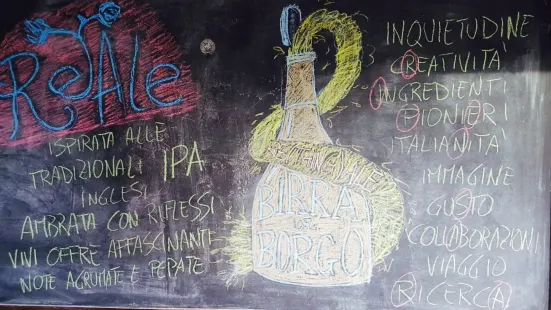 ReAle
ISPIRATA ALLE
TRADIZIONALI IPA
INGLESI
AMBRATA CON RIFLESSI
VIVI OFFRE AFFASCINANTI
NOTE AGRUMATE E PEPATE
BIRRA
DEL
BORGO
INQUIETUDINE
CREATIVITÀ
INGREDIENTI
PIONIERI
ITALIANITÀ
IMMAGINE
GUSTO
COLLABORAZIONI
VIAGGIO
RICERCA